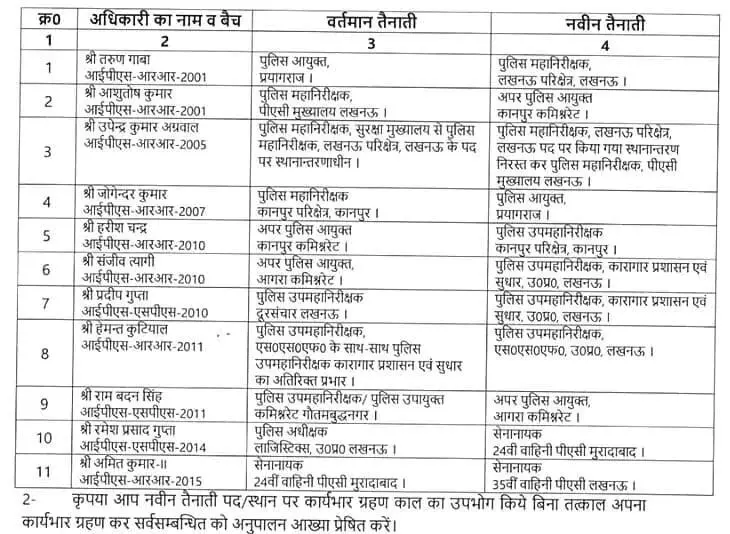 क्र0 अधिकारी का नाम व बैच वर्तमान तैनाती नवीन तैनाती
1 2 3 4
1 श्री तरुण गाबा पुलिस आयुक्त, पुलिस महानिरीक्षक,
आईपीएस-आरआर-2001 प्रयागराज । लखनऊ परिक्षेत्र, लखनऊ ।
2 श्री आशुतोष कुमार पुलिस महानिरीक्षक, अपर पुलिस आयुक्त
आईपीएस-आरआर-2001 पीएसी मुख्यालय लखनऊ । कानपुर कमिश्नरेट ।
3 श्री उपेन्द्र कुमार अग्रवाल पुलिस महानिरीक्षक, सुरक्षा मुख्यालय से पुलिस पुलिस महानिरीक्षक, लखनऊ परिक्षेत्र,
आईपीएस-आरआर-2005 महानिरीक्षक, लखनऊ परिक्षेत्र, लखनऊ के पद लखनऊ पद पर किया गया स्थानान्तरण
पर स्थानान्तरणाधीन । निरस्त कर पुलिस महानिरीक्षक, पीएसी
मुख्यालय लखनऊ ।
4 श्री जोगेन्दर कुमार पुलिस महानिरीक्षक पुलिस आयुक्त,
आईपीएस-आरआर-2007 कानपुर परिक्षेत्र, कानपुर । प्रयागराज ।
5 श्री हरीश चन्द्र अपर पुलिस आयुक्त पुलिस उपमहानिरीक्षक
आईपीएस-आरआर-2010 कानपुर कमिश्नरेट । कानपुर परिक्षेत्र, कानपुर ।
6 श्री संजीव त्यागी अपर पुलिस आयुक्त, पुलिस उपमहानिरीक्षक, कारागार प्रशासन एवं
आईपीएस-आरआर-2010 आगरा कमिश्नरेट । सुधार, उ0प्र0, लखनऊ ।
7 श्री प्रदीप गुप्ता पुलिस उपमहानिरीक्षक पुलिस उपमहानिरीक्षक, कारागार प्रशासन एवं
आईपीएस-एसपीएस-2010 दूरसंचार लखनऊ । सुधार, उ0प्र0, लखनऊ ।
8 श्री हेमन्त कुटियाल पुलिस उपमहानिरीक्षक, पुलिस उपमहानिरीक्षक,
आईपीएस-आरआर-2011 एस0एस0एफ0 के साथ-साथ पुलिस एस0एस0एफ0, उ0प्र0, लखनऊ ।
उपमहानिरीक्षक कारागार प्रशासन एवं सुधार
का अतिरिक्त प्रभार ।
9 श्री राम बदन सिंह पुलिस उपमहानिरीक्षक/ पुलिस उपायुक्त अपर पुलिस आयुक्त,
आईपीएस-एसपीएस-2011 कमिश्नरेट गौतमबुद्धनगर । आगरा कमिश्नरेट ।
10 श्री रमेश प्रसाद गुप्ता पुलिस अधीक्षक सेनानायक
आईपीएस-एसपीएस-2014 लाजिस्टिक्स, उ0प्र0 लखनऊ । 24वी वाहिनी पीएसी मुरादाबाद ।
11 श्री अमित कुमार-II सेनानायक सेनानायक
आईपीएस-आरआर-2015 24वीं वाहिनी पीएसी मुरादाबाद । 35वीं वाहिनी पीएसी लखनऊ ।
2- कृपया आप नवीन तैनाती पद/स्थान पर कार्यभार ग्रहण काल का उपभोग किये बिना तत्काल अपना
कार्यभार ग्रहण कर सर्वसम्बन्धित को अनुपालन आख्या प्रेषित करें।